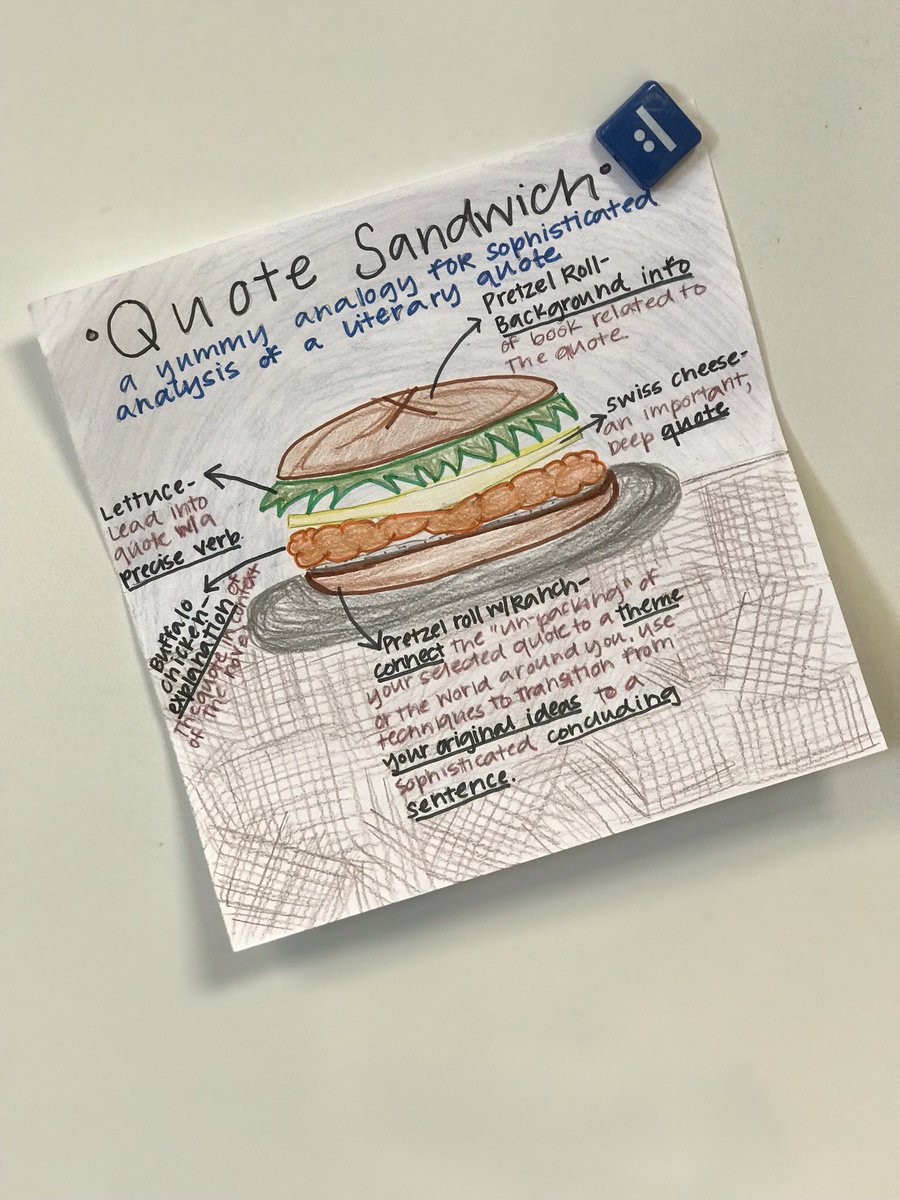 •Quote Sandwich•
a yummy analogy for sophisticated
analysis of a literary quote
Pretzel Roll-
Background info
of book related to
the quote.
swiss cheese-
an important,
deep quote
Lettuce-
Lead into
quote w/a
precise verb.
Buffalo
chicken-
explanation of
the quote in context
of the novel
Pretzel roll w/Ranch-
connect the "un-packing" of
your selected quote to a theme
or the world around you. Use
techniques to transition from
your original ideas to a
sophisticated concluding
sentence.